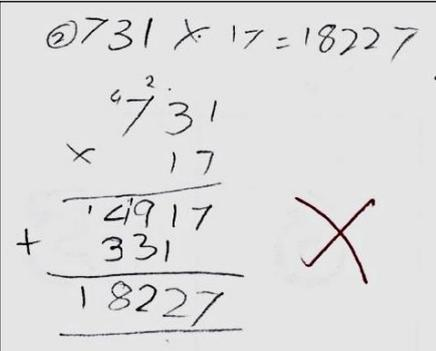 ② 731 × 17 = 18227
4 2
731
× 17
14917
+ 331
18227